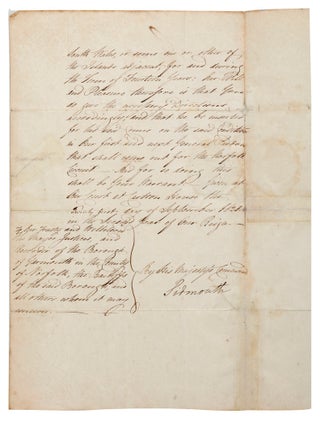 South Wales, or some one or other of
the Islands adjacent, for and during
the Term of Fourteen Years; Our Will
and Pleasure therefore is that you
do give the necessary Directions
accordingly, and that he be inserted
for the said Crime on the said Condition
in Our first and next General Pardon
that shall come out for the Norfolk
Circuit — And for so doing this
shall be Your Warrant. Given at
Our Court at Carlton House the
day of September 1821
in the Second Year of Our Reign —
To Our Trusty and Wellbeloved
the Mayor Justices, and
Recorder of the Borough
of Yarmouth in the County
of Norfolk, the Bailiffs
of the said Borough, and
all others whom it may
concern —
By His Majesty's Command
Sidmouth